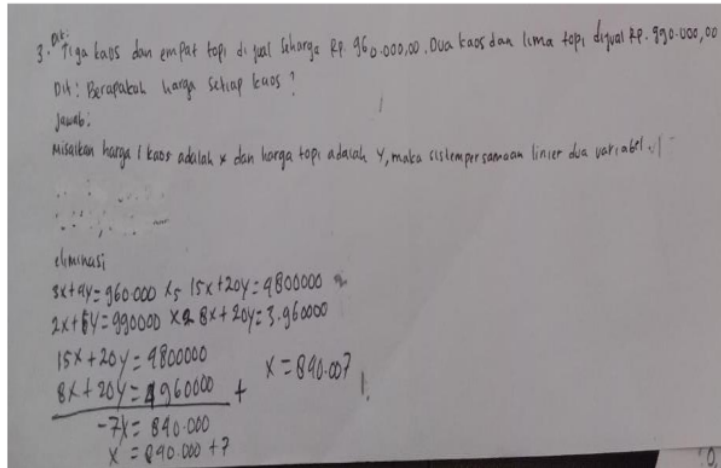 Dit:
3. Tiga kaos dan empat topi di jual seharga Rp. 960.000,00. Dua kaos dan lima topi dijual Rp. 990.000,00
Dit: Berapakah harga setiap kaos?
Jawab:
Misalkan harga 1 kaos adalah x dan harga topi adalah y, maka sistem persamaan linier dua variabel.
eliminasi
3x+4y=960.000 x5 15x+20y=4800000
2x+5y=990000 x4 8x+20y=3.960000
15x+20y=4800000
8x+20y=4960000 +
-7x=840.000
x=840.000+7
x=840.007